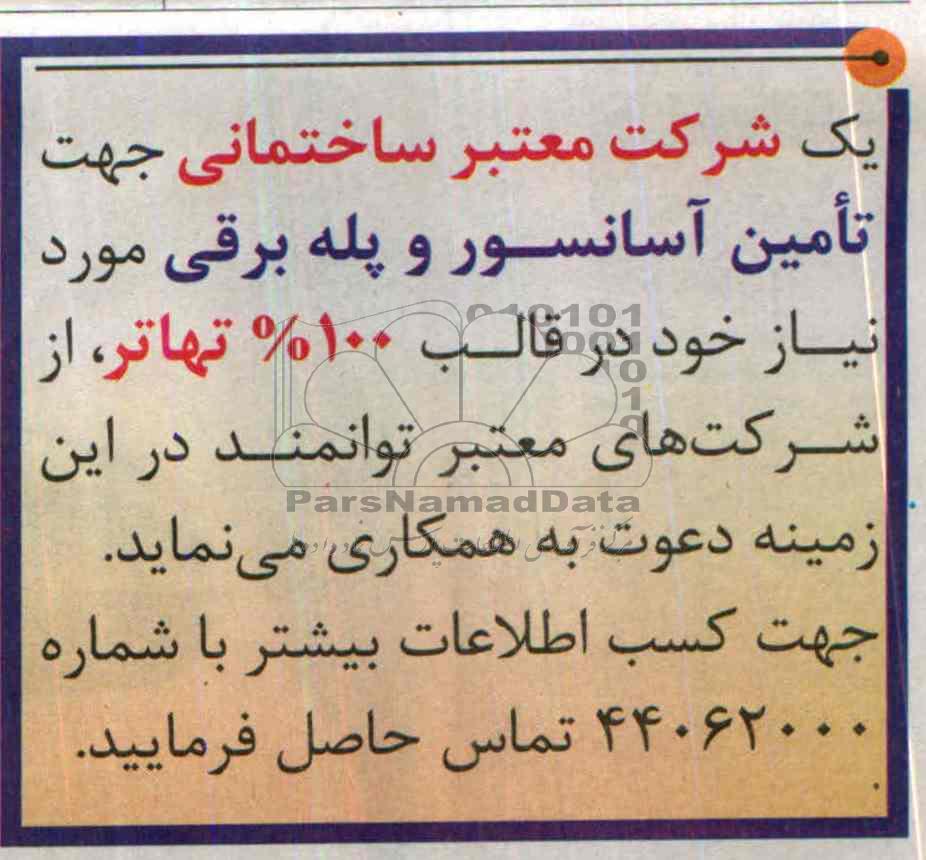 یک شرکت معتبر ساختمانی جهت
تأمین آسانسور و پله برقی مورد
نیاز خود در قالب ۱۰۰% تهاتر، از
شرکت‌های معتبر توانمند در این
زمینه دعوت به همکاری می‌نماید.
جهت کسب اطلاعات بیشتر با شماره
۴۴۰۶۲۰۰۰ تماس حاصل فرمایید.
ParsNamadData